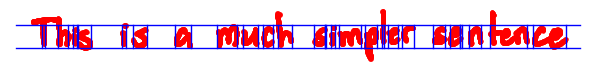 This is a much simpler sentence